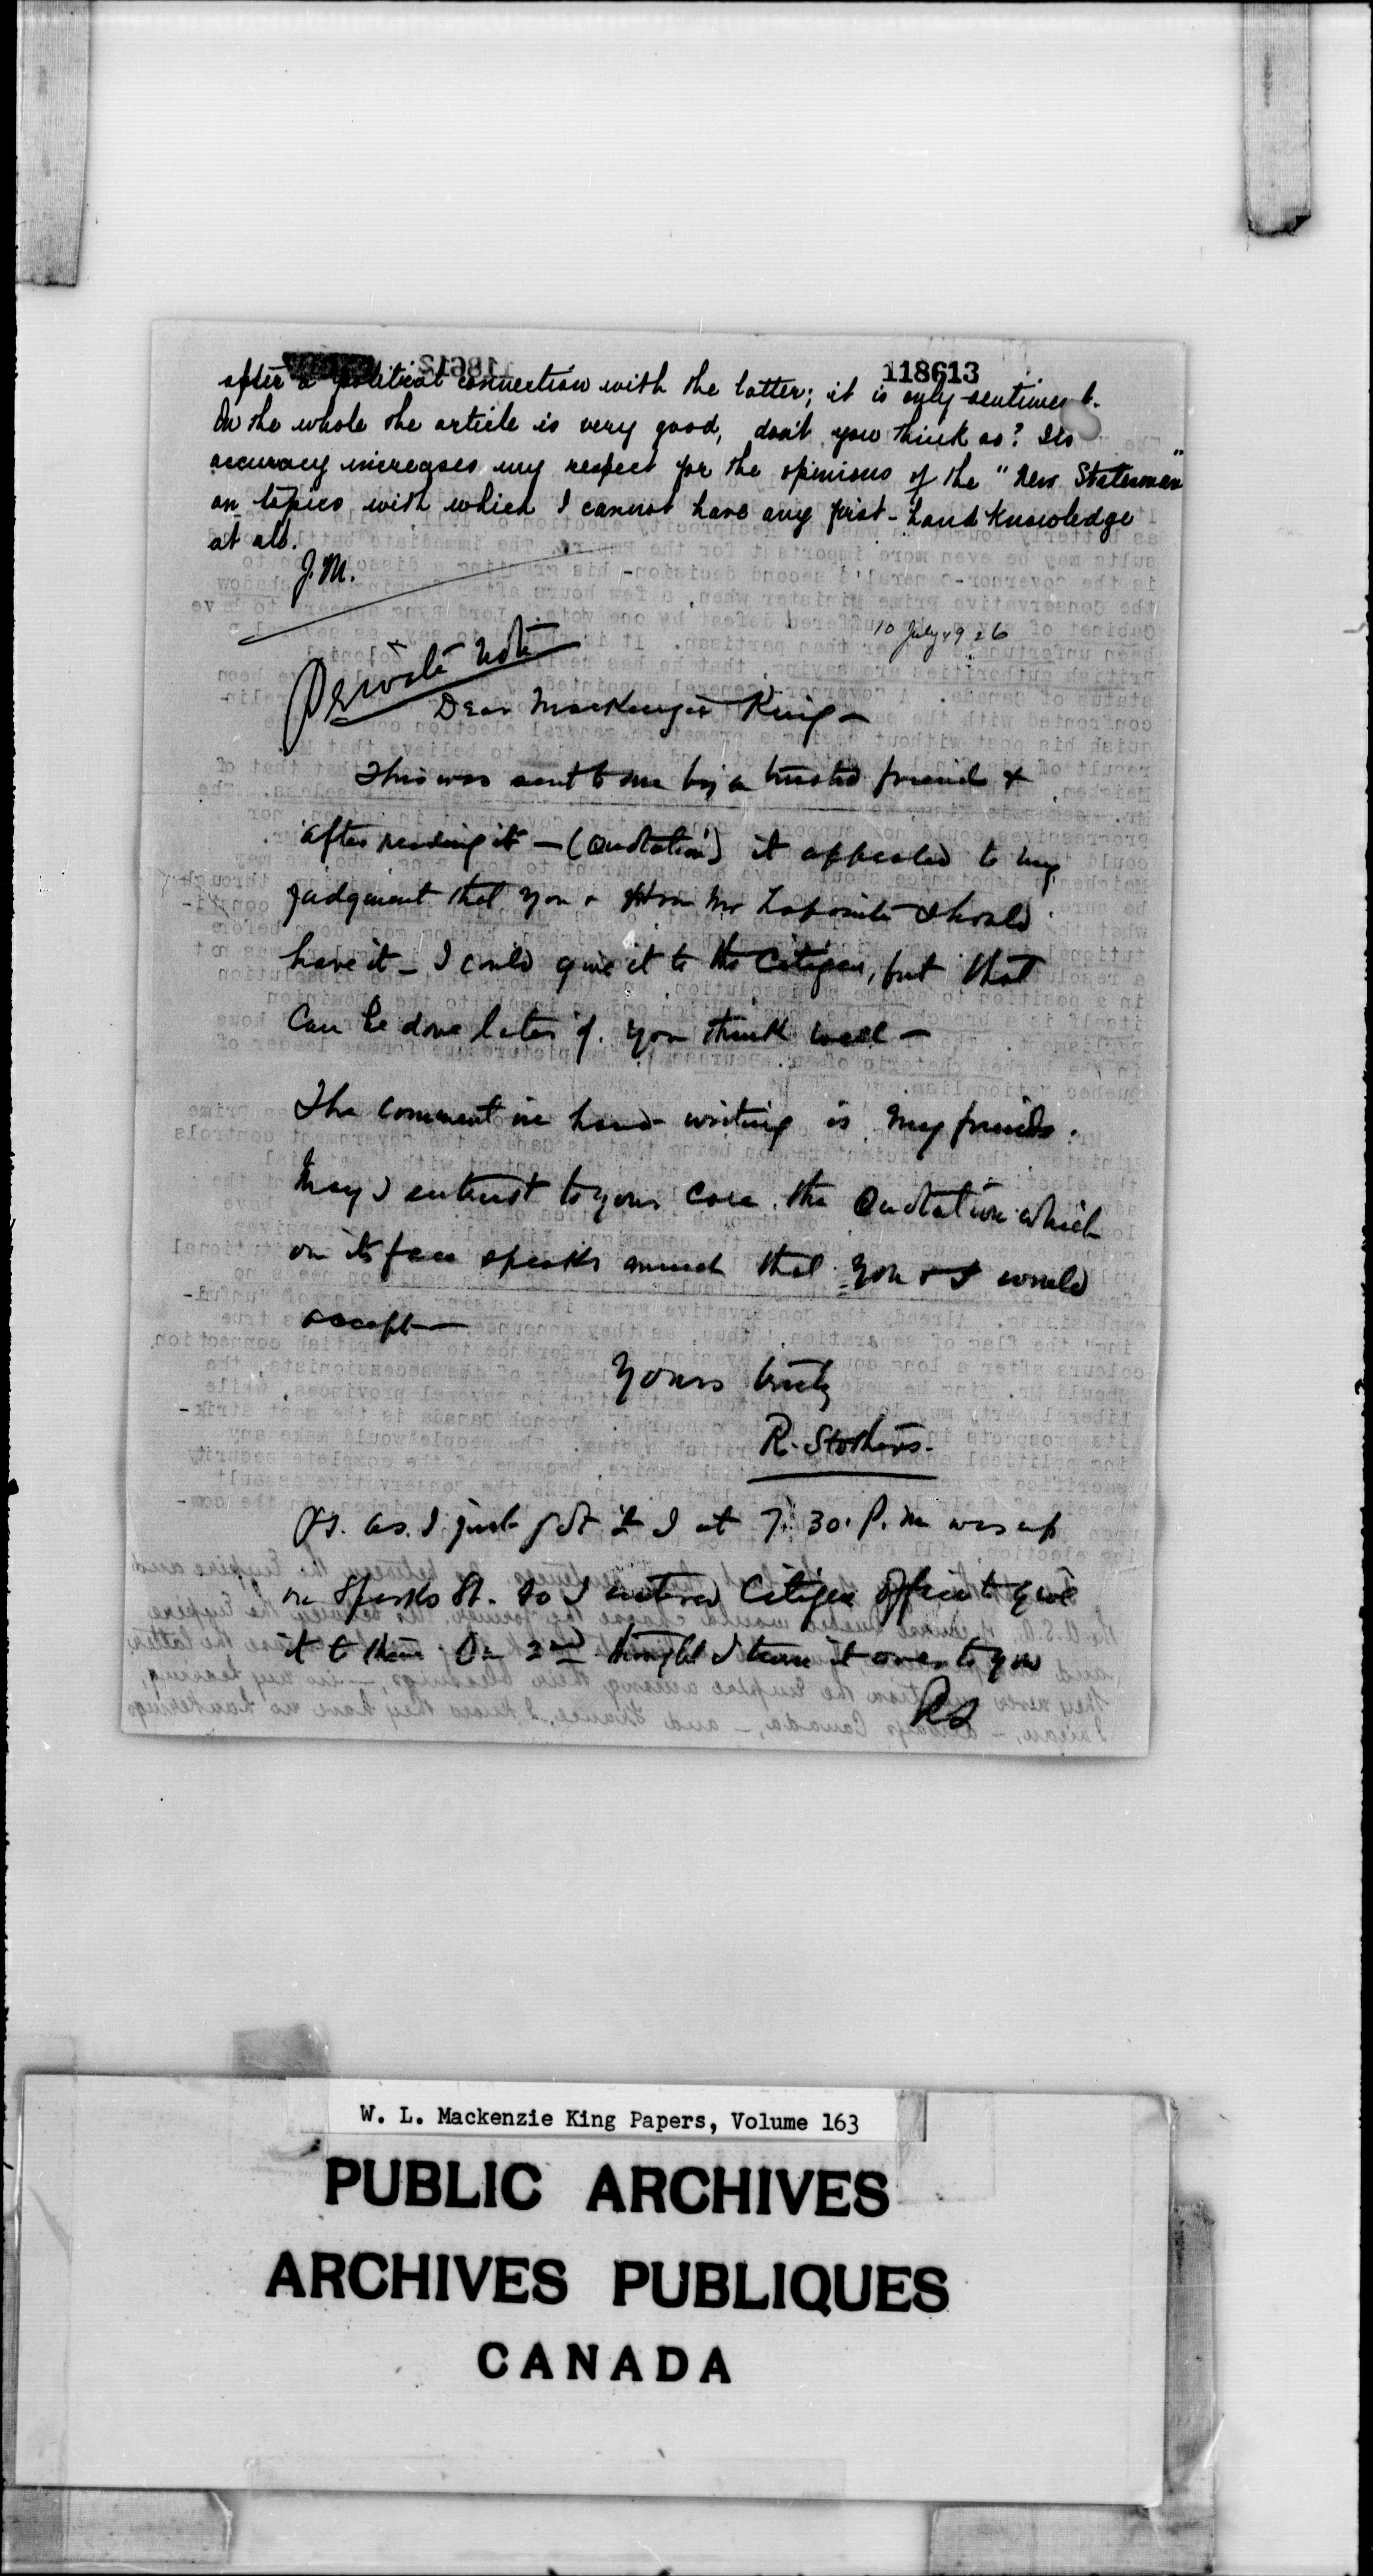 118613
after a political connection with the latter; it is only sentiment.
On the whole the article is very good, don't you think so? Its
accuracy increases my respect for the opinions of the "New Statesman"
on topics with which I cannot have any first-hand knowledge
at all.
J.M.
10 July 1926
Private note
Dear MacKenzie King—
This was sent to me by a trusted friend &
after reading it — (Quotation) it appealed to my
judgment that you & Hon Mr Lapointe should
have it — I could give it to the Citizen, but that
can be done later if you think well —
The comment in hand-writing is my friends.
May I entrust to your care the Quotation which
on its face speaks much that you & I would
accept—
Yours truly
R. Stothers.
P.S. as I just got it I at 7.30. P.m was up
on Sparks St. so I entered Citizen Office to give
it to them. On 2nd thought I turn it over to you
RS
W. L. Mackenzie King Papers, Volume 163
PUBLIC ARCHIVES
ARCHIVES PUBLIQUES
CANADA